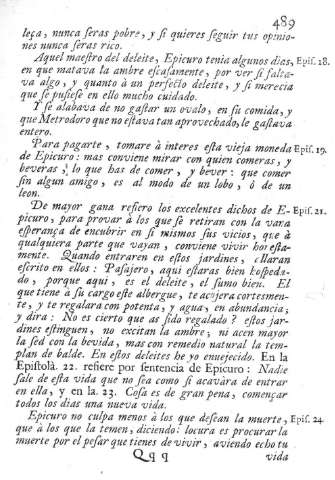 489
leça, nunca seras pobre, y si quieres seguir tus opinio-
nes nunca seras rico.
Aquel maestro del deleite, Epicuro tenia algunos dias, Epis. 18.
en que matava la ambre escasamente, por ver si falta-
va algo, y quanto à un perfecto deleite, y si merecia
que se pusiese en ello mucho cuidado.
Y se alabava de no gastar un ovalo, en su comida, y
que Metrodoro que no estava tan aprovechado, le gastava
entero.
Para pagarte, tomare à interes esta vieja moneda Epis. 19.
de Epicuro: mas conviene mirar con quien comeras, y
beveras, lo que has de comer, y bever: que comer
sin algun amigo, es al modo de un lobo, ó de un
leon.
De mayor gana refiero los excelentes dichos de E- Epis. 21.
picuro, para provar à los que sè retiran con la vana
esperança de encubrir en si mismos sus vicios, que à
qualquiera parte que vayan, conviene vivir honesta-
mente. Quando entraren en estos jardines, allaran
escrito en ellos: Pasajero, aqui estaras bien hospeda-
do, porque aqui, es el deleite, el sumo bien. El
que tiene à su cargo este albergue, te acojera cortesmen-
te, y te regalara con potenta, y agua, en abundancia;
y dira: No es cierto que as sido regalado? estos jar-
dines estinguen, no excitan la ambre; ni acen mayor
la sed con la bevida, mas con remedio natural la tem-
plan de balde. En estos deleites he yo enuejecido. En la
Epistola. 22. refiere por sentencia de Epicuro: Nadie
sale de esta vida que no sea como si acavara de entrar
en ella, y en la 23. Cosa es de gran pena, començar
todos los dias una nueva vida.
Epicuro no culpa menos à los que desean la muerte, Epis. 24.
que à los que la temen, diciendo: locura es procurar la
muerte por el pesar que tienes de vivir, aviendo echo tu
Qqq vida